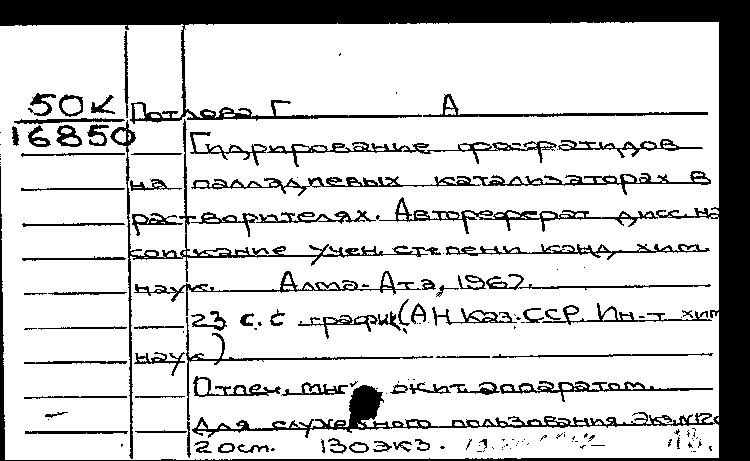 50К Потлова, Г А
16850
Гидрирование фосфатидов
на палладиевых катализаторах в
растворителях. Автореферат дисс. на
соискание учен. степени канд. хим.
наук. Алма-Ата, 1967.
23 с. с график. (АН Каз. ССР. Ин-т хим
наук).
Отпеч. аппаратом.
Для служебного пользования. Экз. №
20см. 130экз.